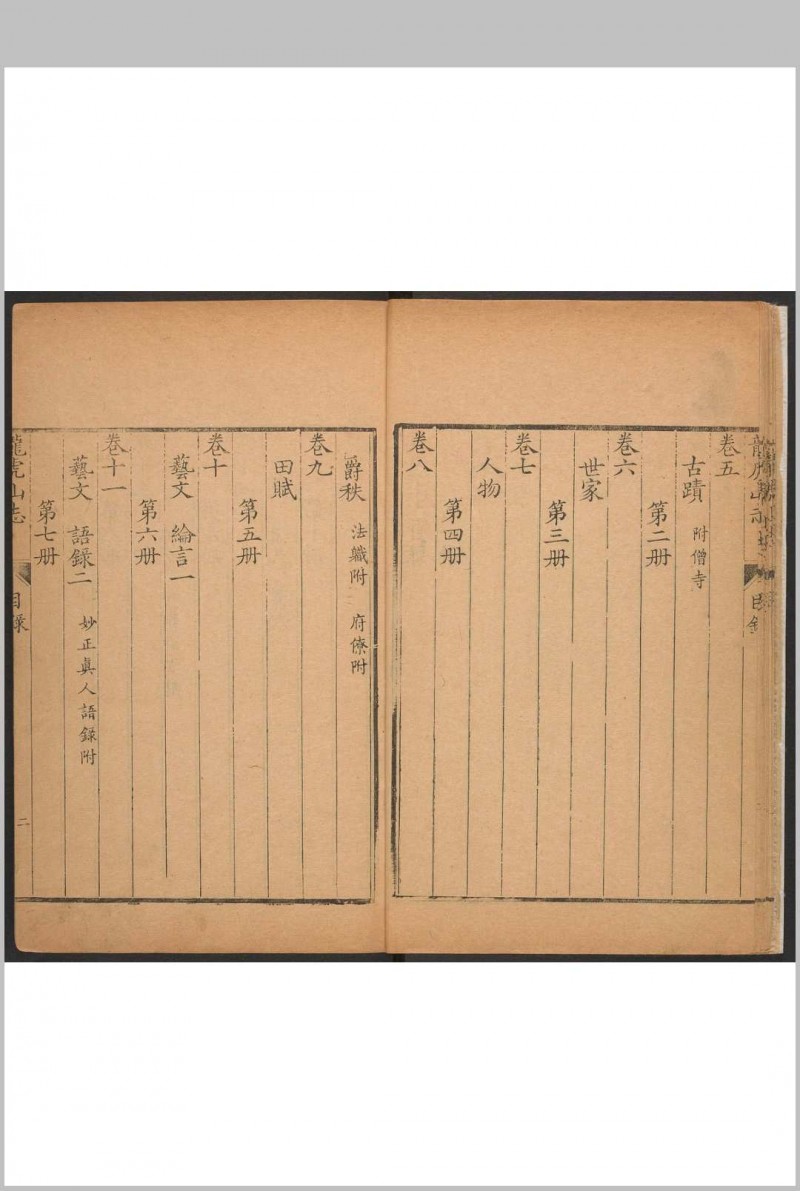 卷五
古蹟 附僧寺
第二册
卷六
世家
第三册
卷七
人物
第四册
卷八
爵秩 法職附 府僚附
卷九
田賦
第五册
卷十
藝文 綸言一
第六册
卷十一
藝文 語錄二 妙正眞人語錄附
第七册
龍虎山志 目錄 二